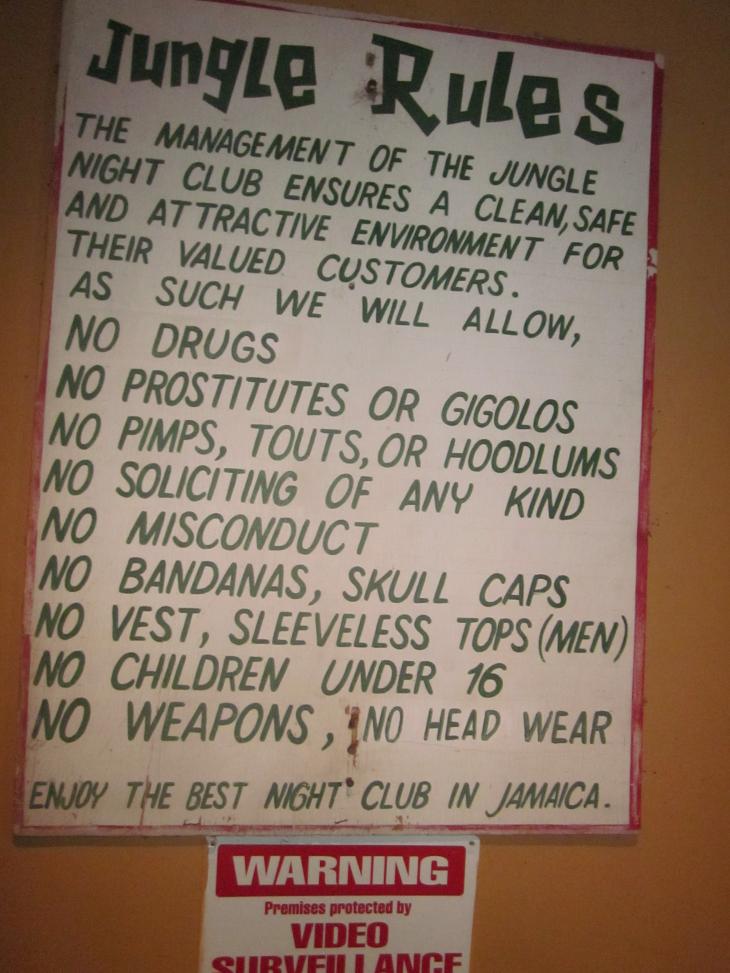 Jungle Rules
THE MANAGEMENT OF THE JUNGLE
NIGHT CLUB ENSURES A CLEAN, SAFE
AND ATTRACTIVE ENVIRONMENT FOR
THEIR VALUED CUSTOMERS.
AS SUCH WE WILL ALLOW,
NO DRUGS
NO PROSTITUTES OR GIGOLOS
NO PIMPS, TOUTS, OR HOODLUMS
NO SOLICITING OF ANY KIND
NO MISCONDUCT
NO BANDANAS, SKULL CAPS
NO VEST, SLEEVELESS TOPS (MEN)
NO CHILDREN UNDER 16
NO WEAPONS, NO HEAD WEAR
ENJOY THE BEST NIGHT CLUB IN JAMAICA.
WARNING
Premises protected by
VIDEO
SURVEILLANCE